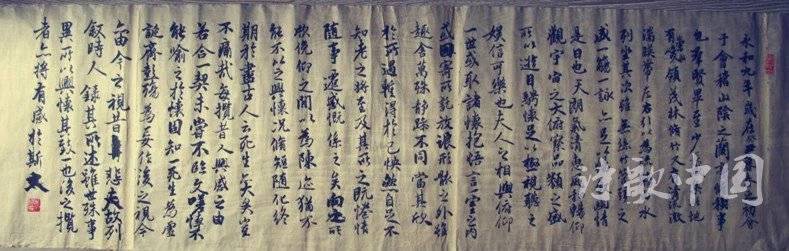 永和九年歲在癸丑暮春之初會
于會稽山陰之蘭亭脩稧事
也羣賢畢至少長咸集此地
有崇山峻領茂林脩竹又有清流激
湍暎帶左右引以為流觴曲水
列坐其次雖無絲竹管弦之
盛一觴一詠亦足以暢敘幽情
是日也天朗氣清惠風和暢仰
觀宇宙之大俯察品類之盛
所以遊目騁懷足以極視聽之
娛信可樂也夫人之相與俯仰
一世或取諸懷抱悟言一室之內
或因寄所託放浪形骸之外雖
趣舍萬殊靜躁不同當其欣
於所遇暫得於己怏然自足不
知老之將至及其所之既惓情
隨事遷感慨係之矣向之所
欣俛仰之間以為陳迹猶不
能不以之興懷況脩短隨化終
期於盡古人云死生亦大矣豈
不痛哉每攬昔人興感之由
若合一契未嘗不臨文嗟悼不
能喻之於懷固知一死生為虛
誕齊彭殤為妄作後之視今
亦由今之視昔悲夫故列
敘時人錄其所述雖世殊事
異所以興懷其致一也後之攬
者亦將有感於斯文
诗歌中国